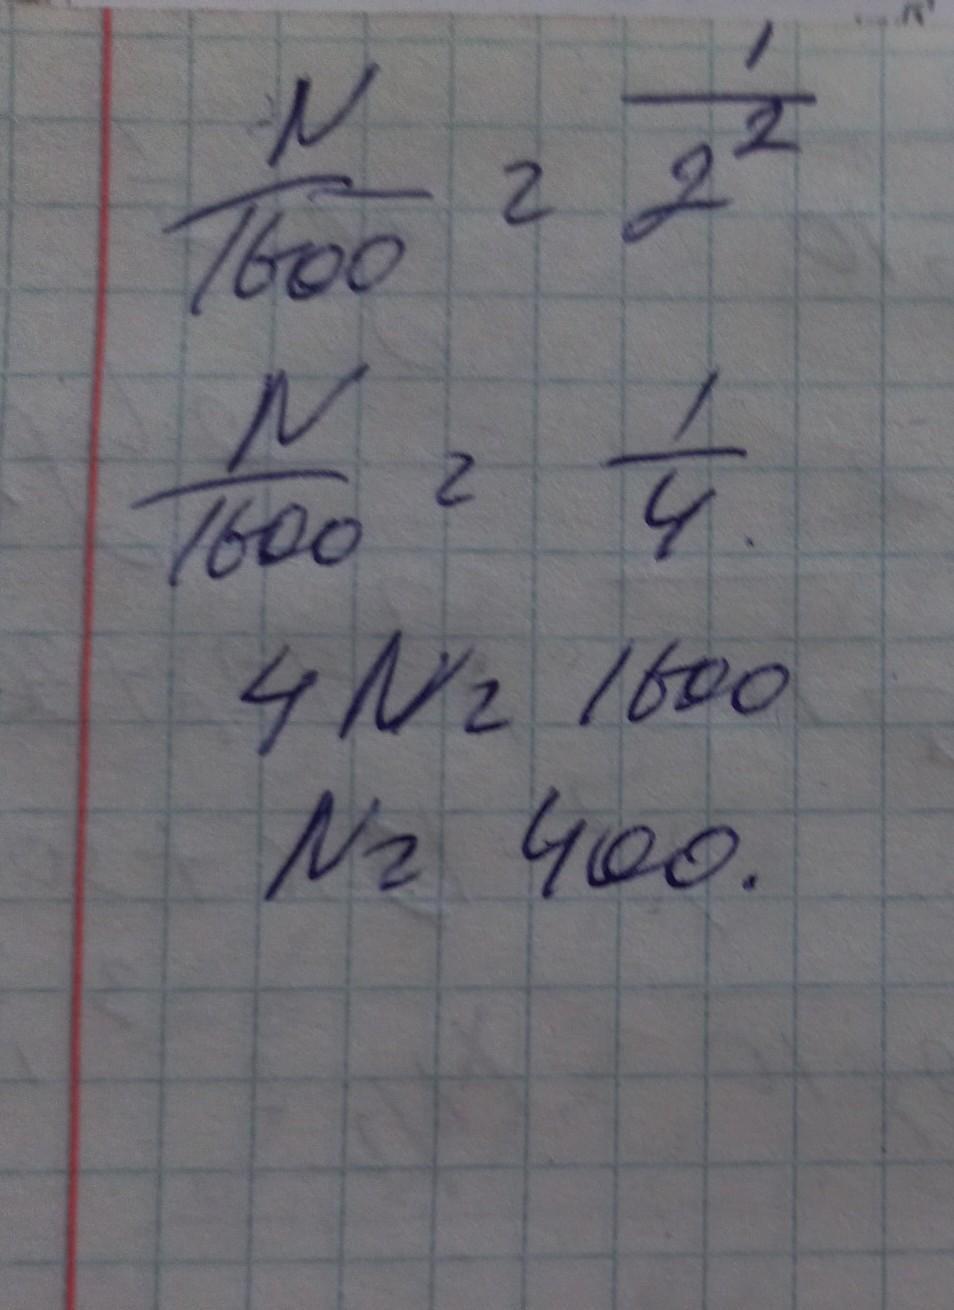 N/1600 = 1/2²
N/1600 = 1/4.
4N = 1600
N = 400.